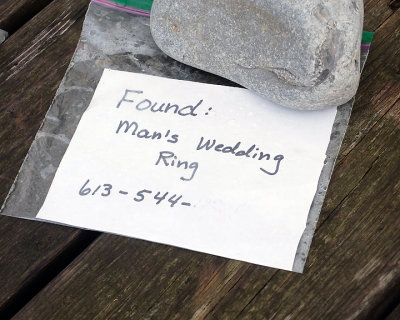 Found:
Man's Wedding
Ring
613-544-